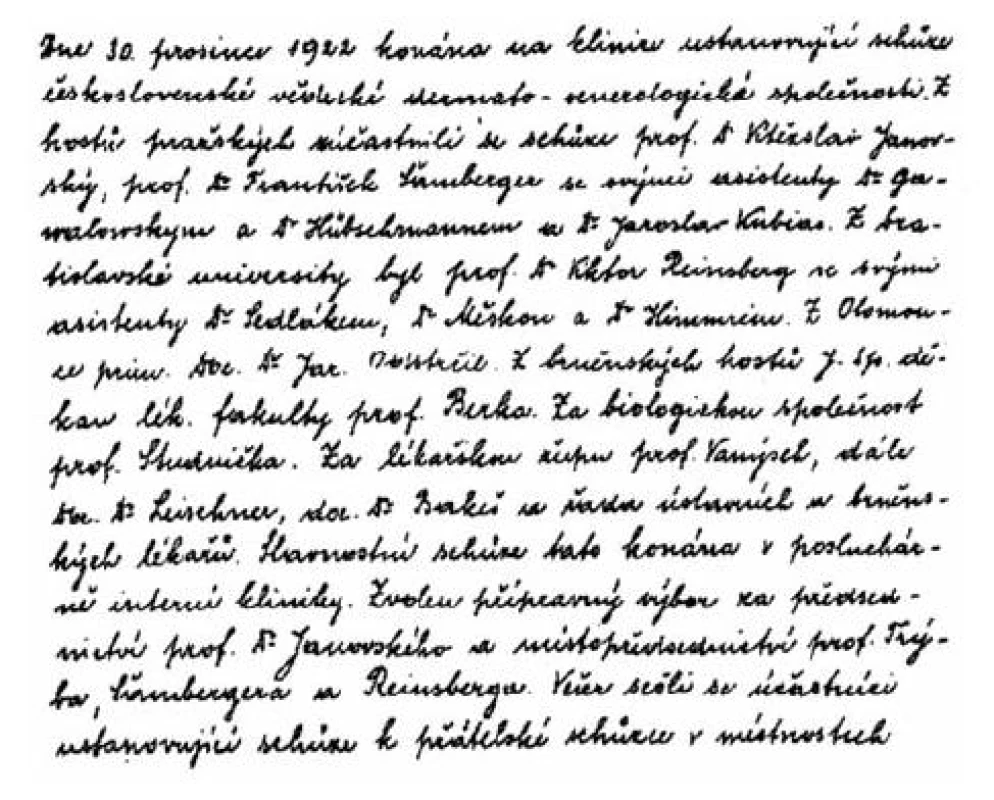 Dne 30. prosince 1922 konána na klinice ustanovující schůze
československé vědecké dermato-venerologické společnosti. Z
hostů pražských zúčastnili se schůze prof. Dr Vítězslav Janov-
ský, prof. Dr František Šamberger se svými asistenty Dr Ga-
walowským a Dr Hübschmannem a Dr Jaroslav Kubias. Z bra-
tislavské university byl prof. Dr Viktor Reinsberg se svými
asistenty Dr Sedlákem, Dr Měškou a Dr Himmrem. Z Olomou-
ce prim. doc. Dr Jar. Dostrčil. Z brněnských hostů J. Sp. dě-
kan lék. fakulty prof. Berka. Za biologickou společnost
prof. Studnička. Za lékařskou župu prof. Vanýsek, dále
doc. Dr Leischner, doc. Dr Bakeš a řada ústavních a brněns-
kých lékařů. Slavnostní schůze tato konána v posluchár-
ně interní kliniky. Zvolen přípravný výbor za předsed-
nictví prof. Dr Janovského a místopředsednictví prof. Trý-
ba, Šambergera a Reinsberga. Večer sešli se účastníci
ustanovující schůze k přátelské schůzce v místnostech